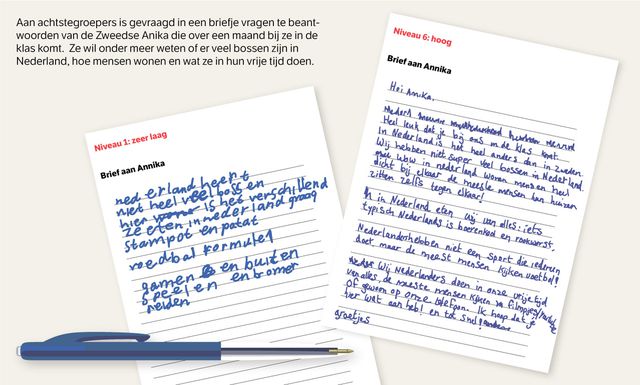 Aan achtstegroepers is gevraagd in een briefje vragen te beant-
woorden van de Zweedse Anika die over een maand bij ze in de
klas komt. Ze wil onder meer weten of er veel bossen zijn in
Nederland, hoe mensen wonen en wat ze in hun vrije tijd doen.
Niveau 1: zeer laag
Brief aan Annika
ned erland heert
niet heel veel bossen
hier is het verschillend
ze eten in nederland graag
stampot en patat
voedbal formule 1
gamen en buiten
speelen en bromer
reiden
Niveau 6: hoog
Brief aan Annika
Hoi Annika.
Heel leuk dat je bij ons in de klas komt
In Nederland is het heel anders dan in zweden.
Wij hebben niet super veel bossen in Nederland.
in nederland wonen mensen heel
dicht bij elkaar de meeste mensen hun huizen
zitten zelfs tegen elkaar!
in Nederland eten wij van alles: iets
typisch Nederlands is boerenkool en rookworst.
Nederlanders hebben niet een sport die iedereen
doet maar de meest mensen kijken voetbal!
Wij Nederlanders doen in onze vrije tijd
van alles, de meeste mensen kijken
Of gewoon op onze telefoon. Ik hoop dat je
hier wat aan heb! en tot snel!
groetjes